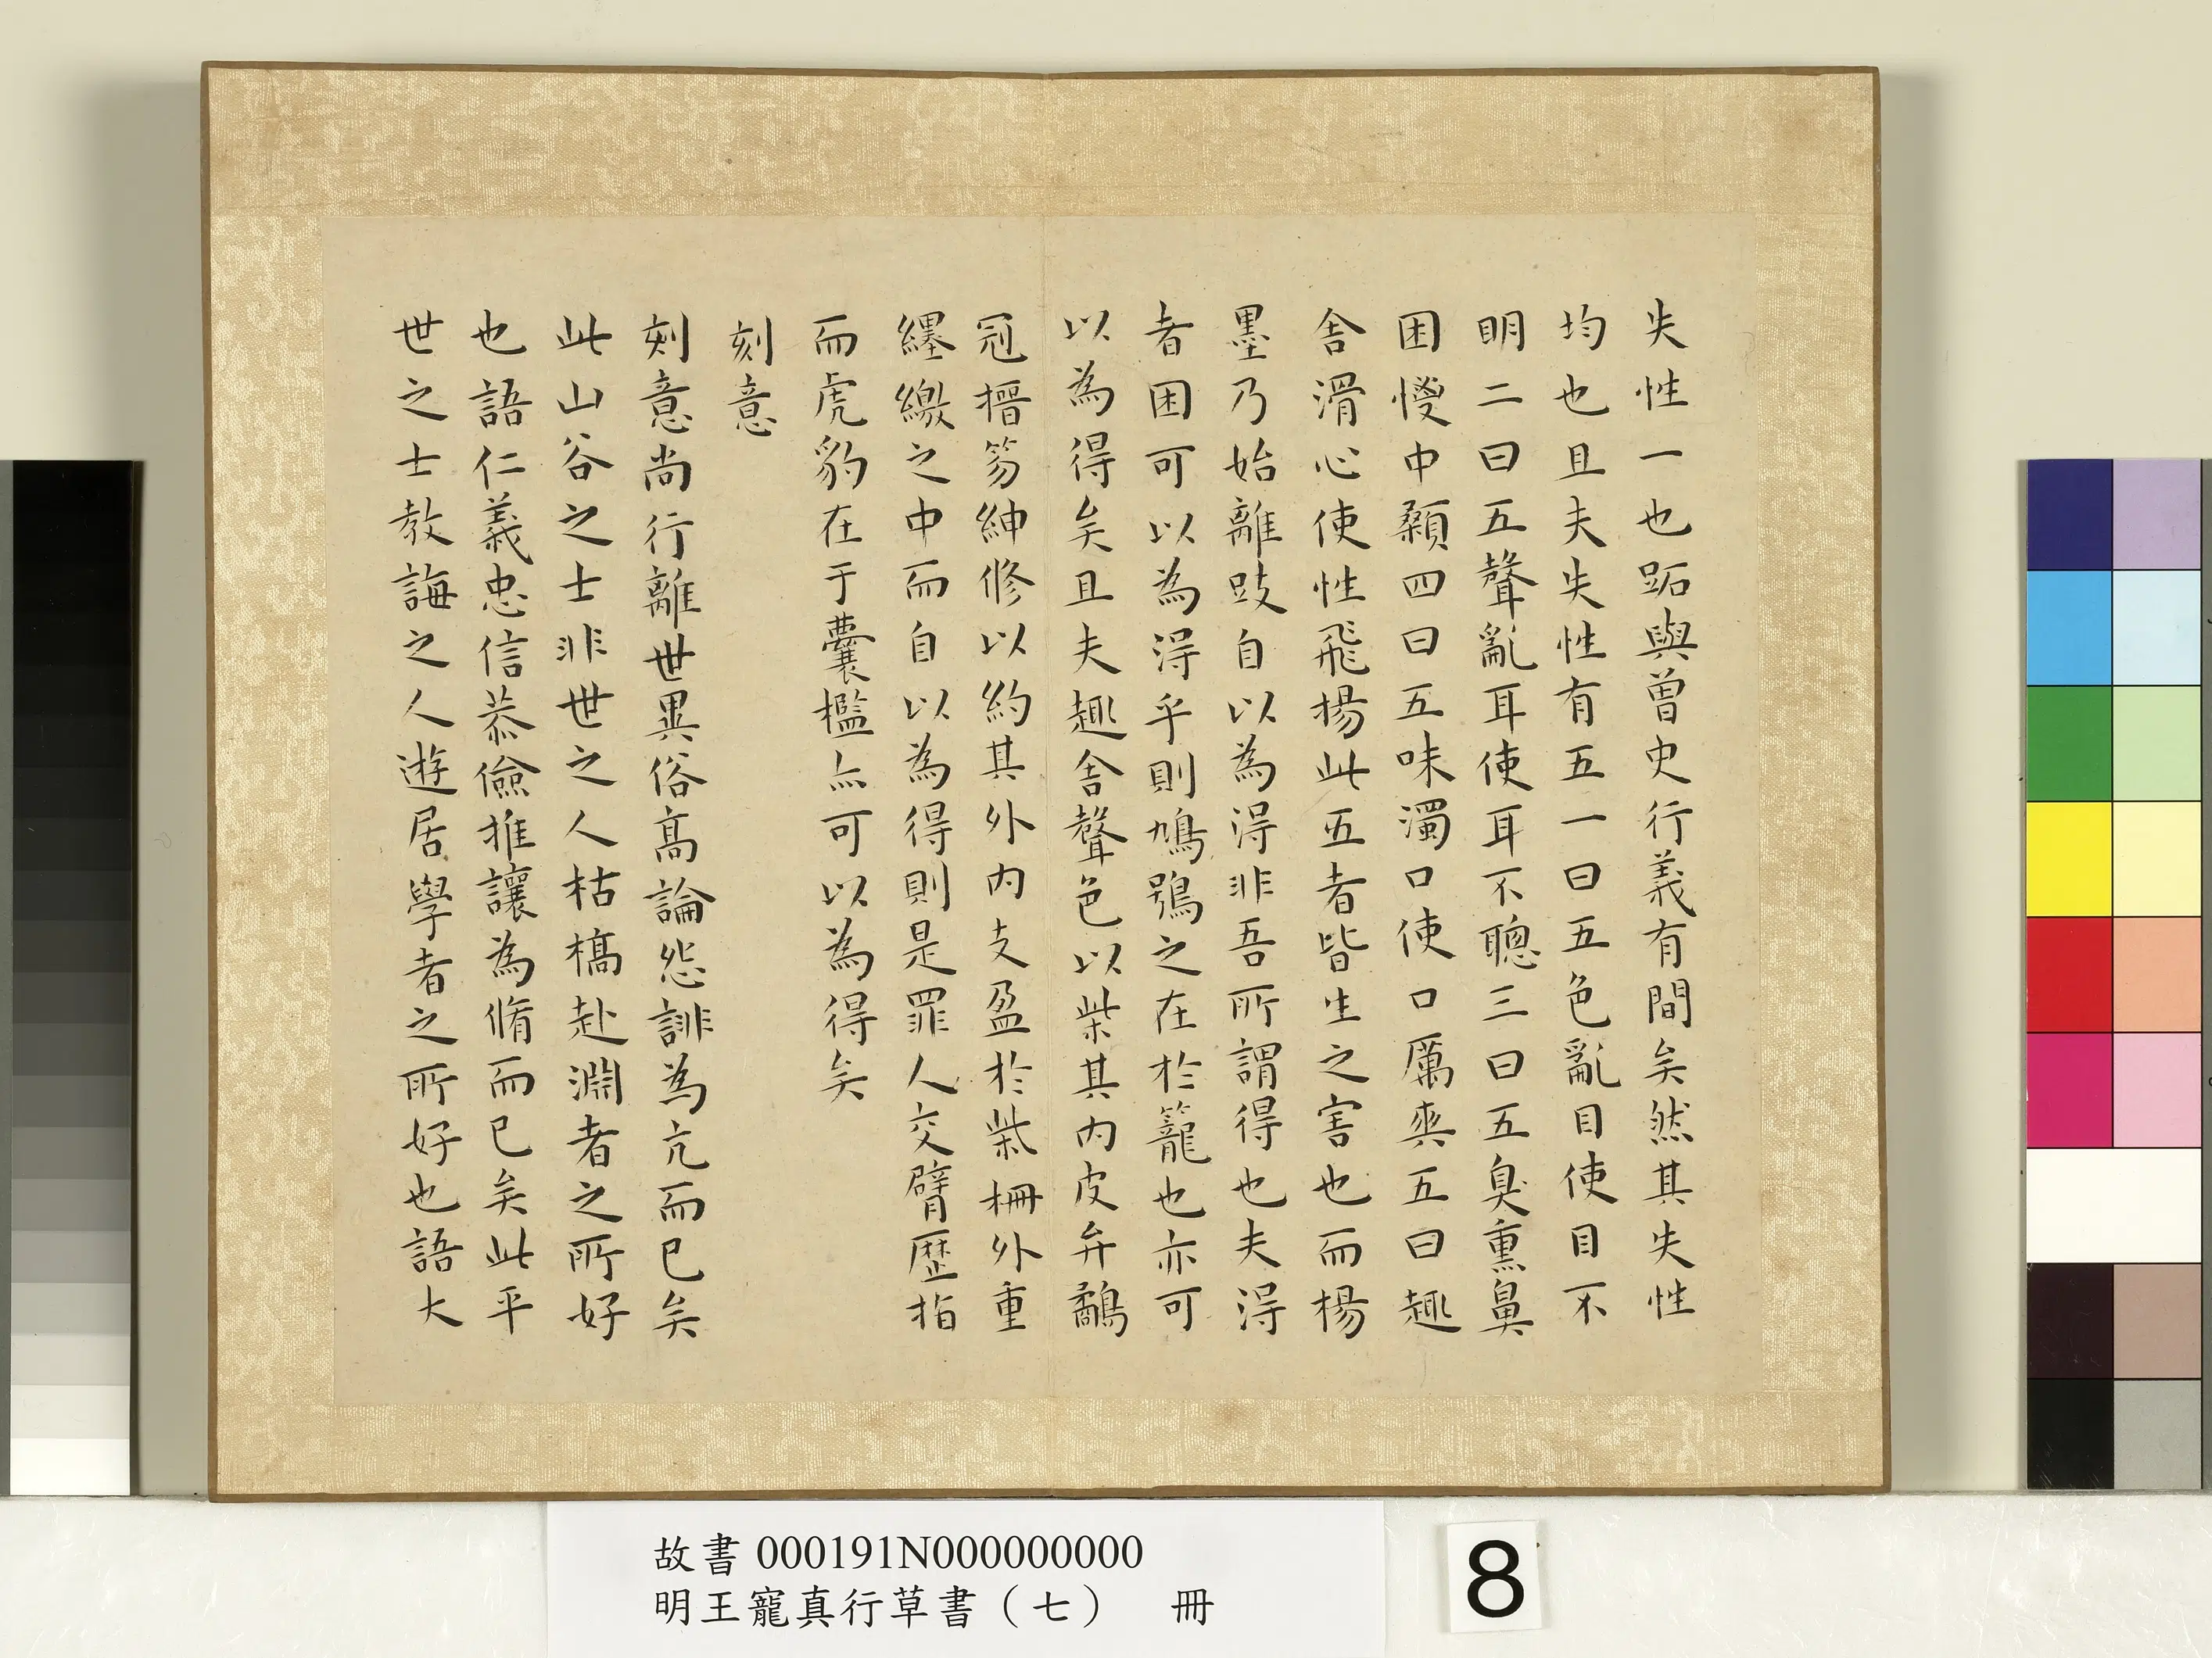 失性一也跖與曾史行義有間矣然其失性
均也且夫失性有五一曰五色亂目使目不
明二曰五聲亂耳使耳不聰三曰五臭熏鼻
困惾中顙四曰五味濁口使口厲爽五曰趣
舍滑心使性飛揚此五者皆生之害也而楊
墨乃始離跂自以為得非吾所謂得也夫得
者困可以為得乎則鳩鴞之在於籠也亦可
以為得矣且夫趣舍聲色以柴其內皮弁鷸
冠搢笏紳修以約其外內支盈於柴柵外重
纆繳之中而自以為得則是罪人交臂歷指
而虎豹在于囊檻亦可以為得矣
刻意
刻意尚行離世異俗高論怨誹為亢而已矣
此山谷之士非世之人枯槁赴淵者之所好
也語仁義忠信恭儉推讓為脩而已矣此平
世之士教誨之人遊居學者之所好也語大
故書 000191N000000000
明王寵真行草書（七） 冊
8